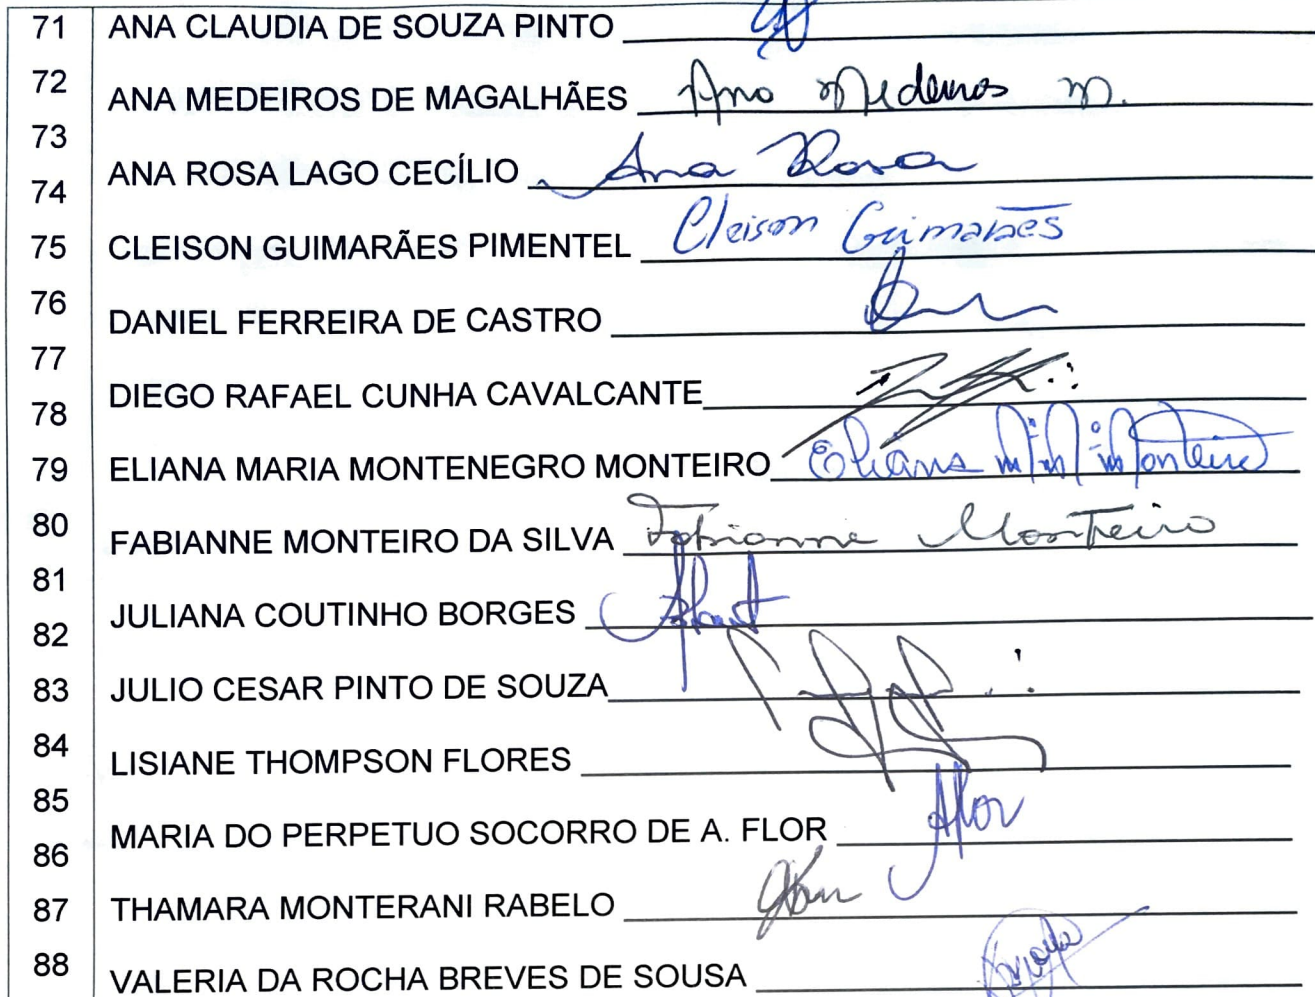 71 ANA CLAUDIA DE SOUZA PINTO
72 ANA MEDEIROS DE MAGALHÃES Ana Medeiros m.
73
74 ANA ROSA LAGO CECÍLIO Ana Rosa
75 CLEISON GUIMARÃES PIMENTEL Cleison Guimarães
76 DANIEL FERREIRA DE CASTRO
77
78 DIEGO RAFAEL CUNHA CAVALCANTE
79 ELIANA MARIA MONTENEGRO MONTEIRO Eliana Monteiro
80 FABIANNE MONTEIRO DA SILVA Fabianne Monteiro
81
82 JULIANA COUTINHO BORGES
83 JULIO CESAR PINTO DE SOUZA
84 LISIANE THOMPSON FLORES
85
86 MARIA DO PERPETUO SOCORRO DE A. FLOR Aflor
87 THAMARA MONTERANI RABELO
88 VALERIA DA ROCHA BREVES DE SOUSA